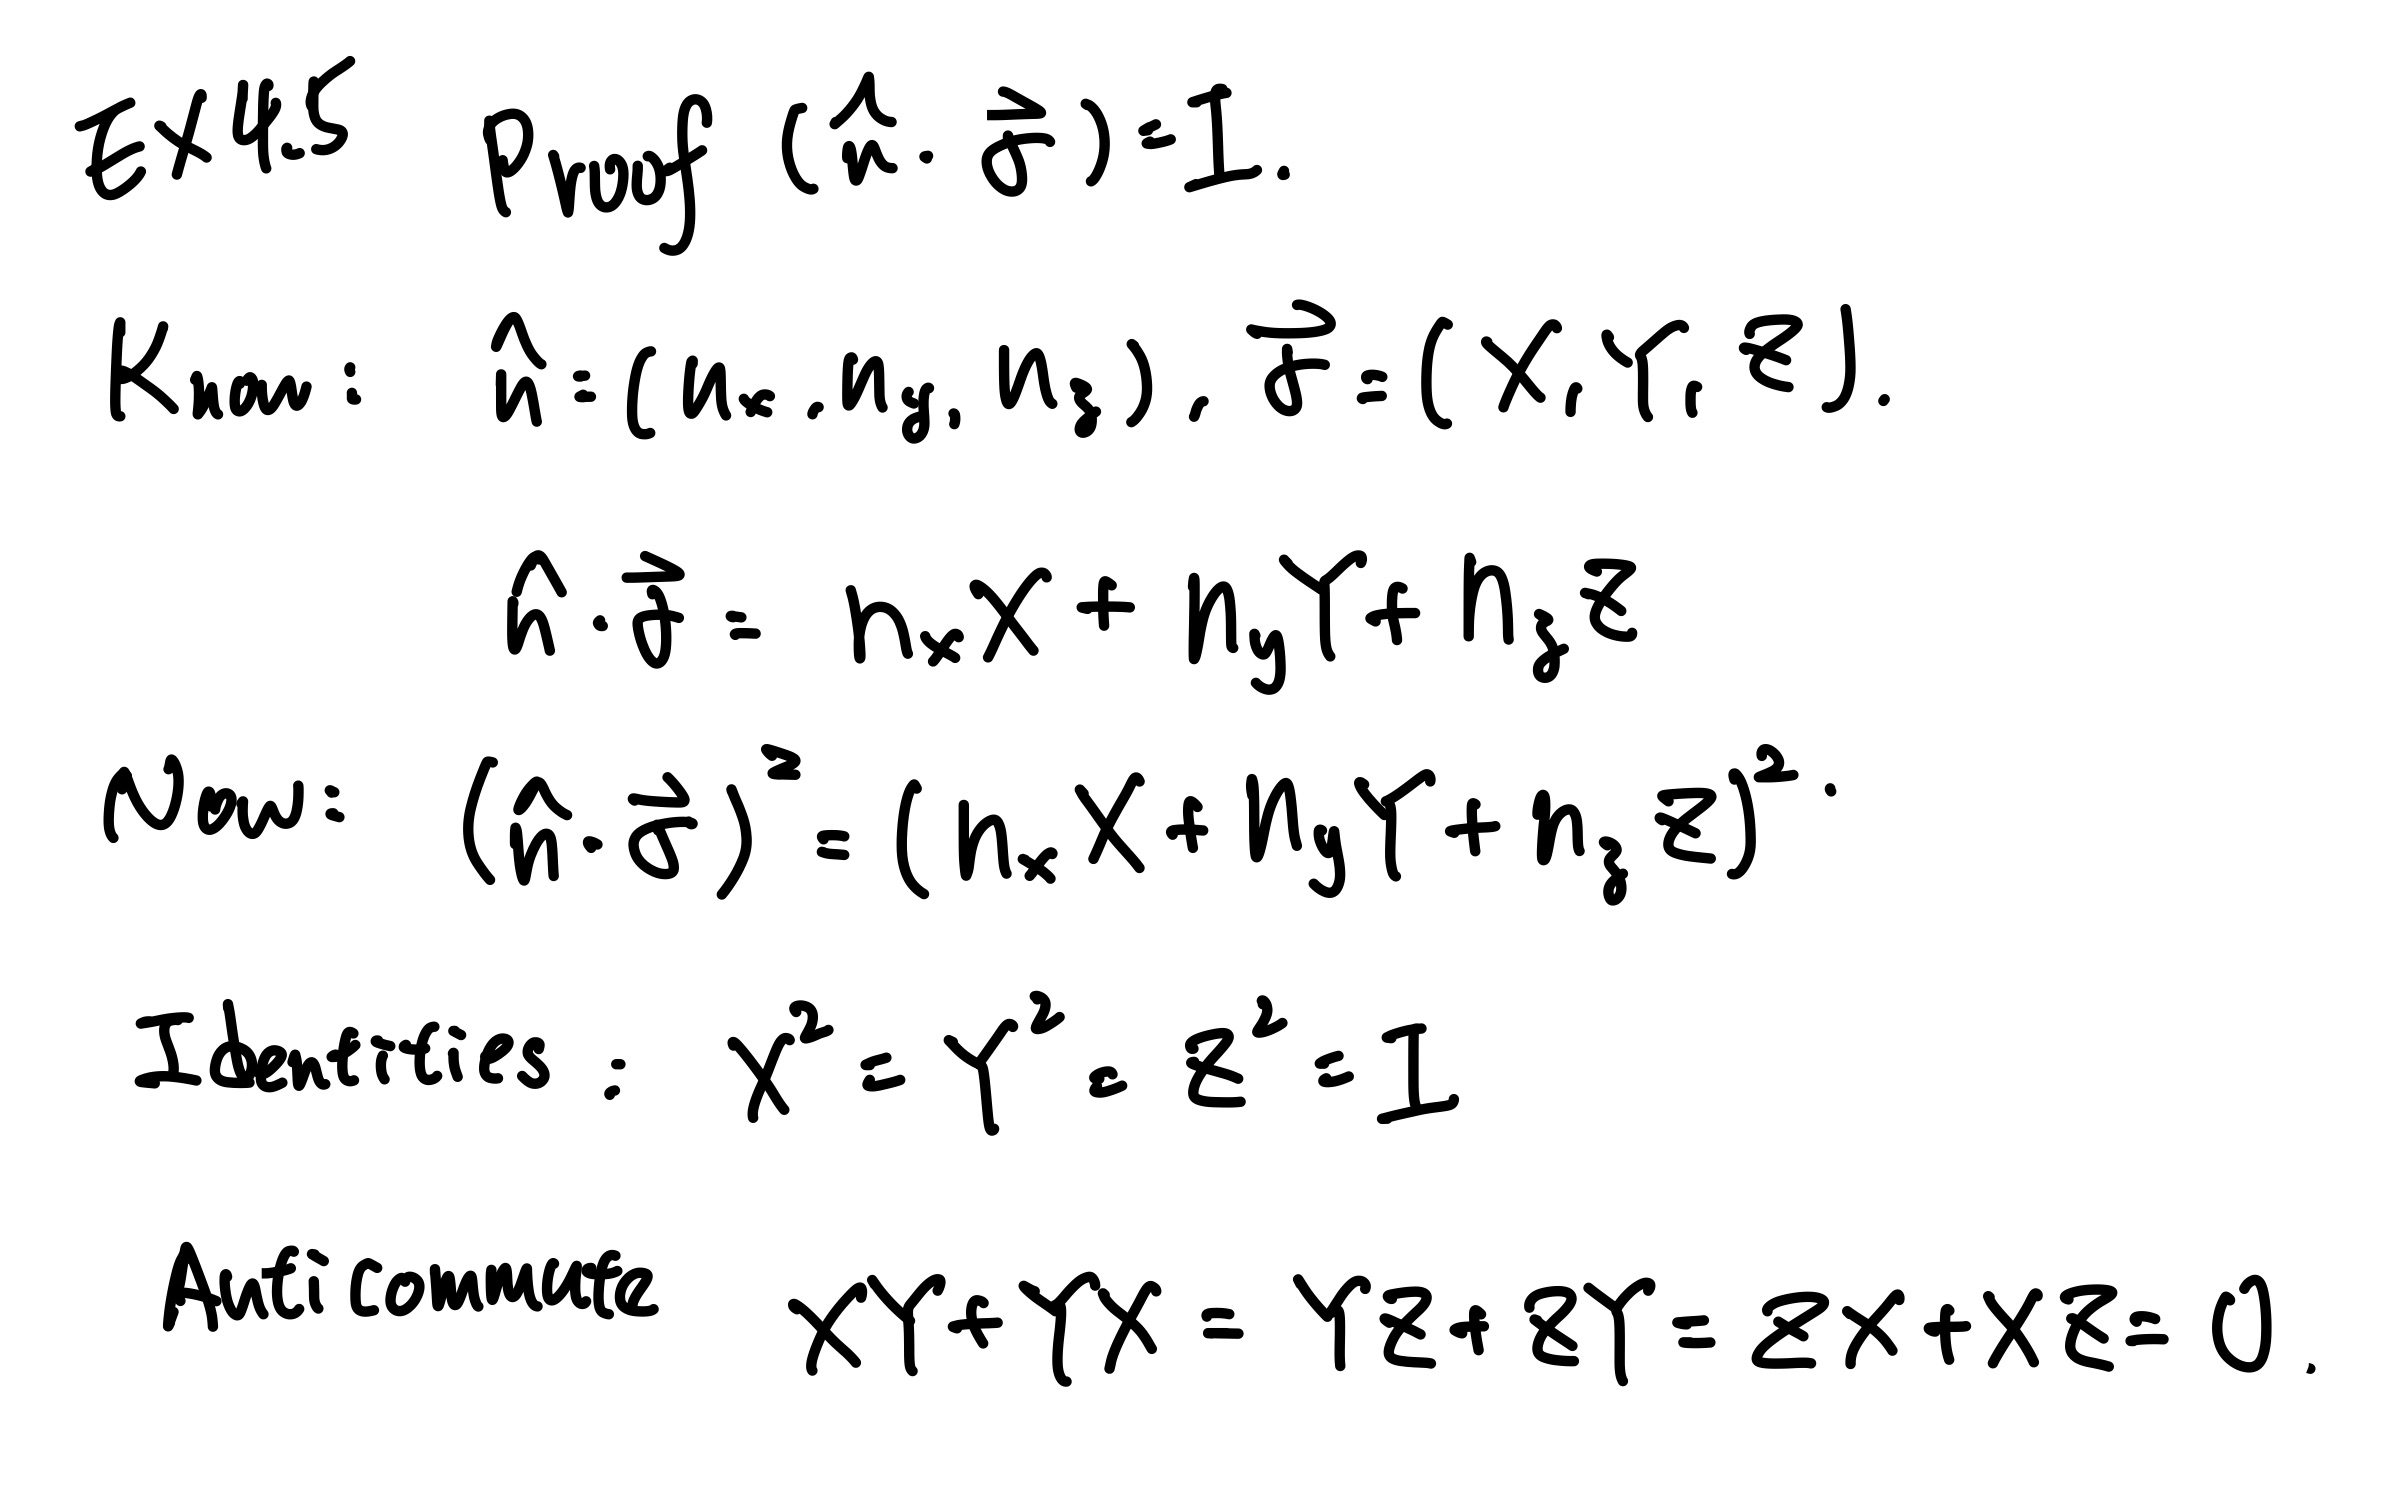 Ex 4.5 Proof (n̂·σ⃗)=I.
Know: n̂=(nx, ny, nz), σ⃗=(X, Y, Z).
n̂·σ⃗= nxX+nyY+nzZ
Now: (n̂·σ⃗)²=(nxX+nyY+nzZ)².
Identities: X²=Y²=Z²=I
Anticommute XY+YX=YZ+ZY=ZX+XZ=0.